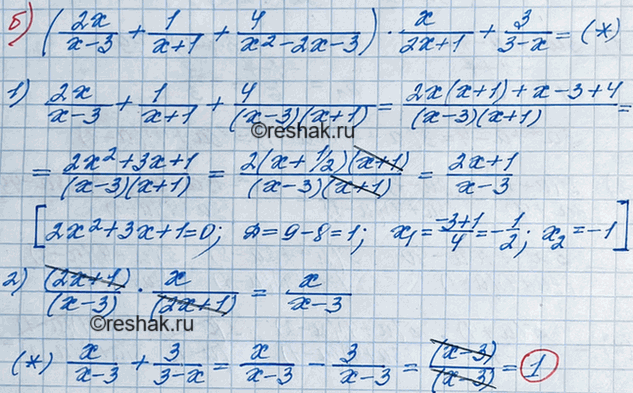 б) (2x/(x-3) + 1/(x+1) + 4/(x²-2x-3)) · x/(2x+1) + 3/(3-x) = (*)
1) 2x/(x-3) + 1/(x+1) + 4/((x-3)(x+1)) = (2x(x+1)+x-3+4)/((x-3)(x+1)) =
©reshak.ru
= (2x²+3x+1)/((x-3)(x+1)) = (2(x+1/2)(x+1))/((x-3)(x+1)) = (2x+1)/(x-3)
[2x²+3x+1=0; D=9-8=1; x₁=(-3+1)/4=-1/2; x₂=-1]
2) (2x+1)/(x-3) · x/(2x+1) = x/(x-3)
©reshak.ru
(*) x/(x-3) + 3/(3-x) = x/(x-3) - 3/(x-3) = (x-3)/(x-3) = 1